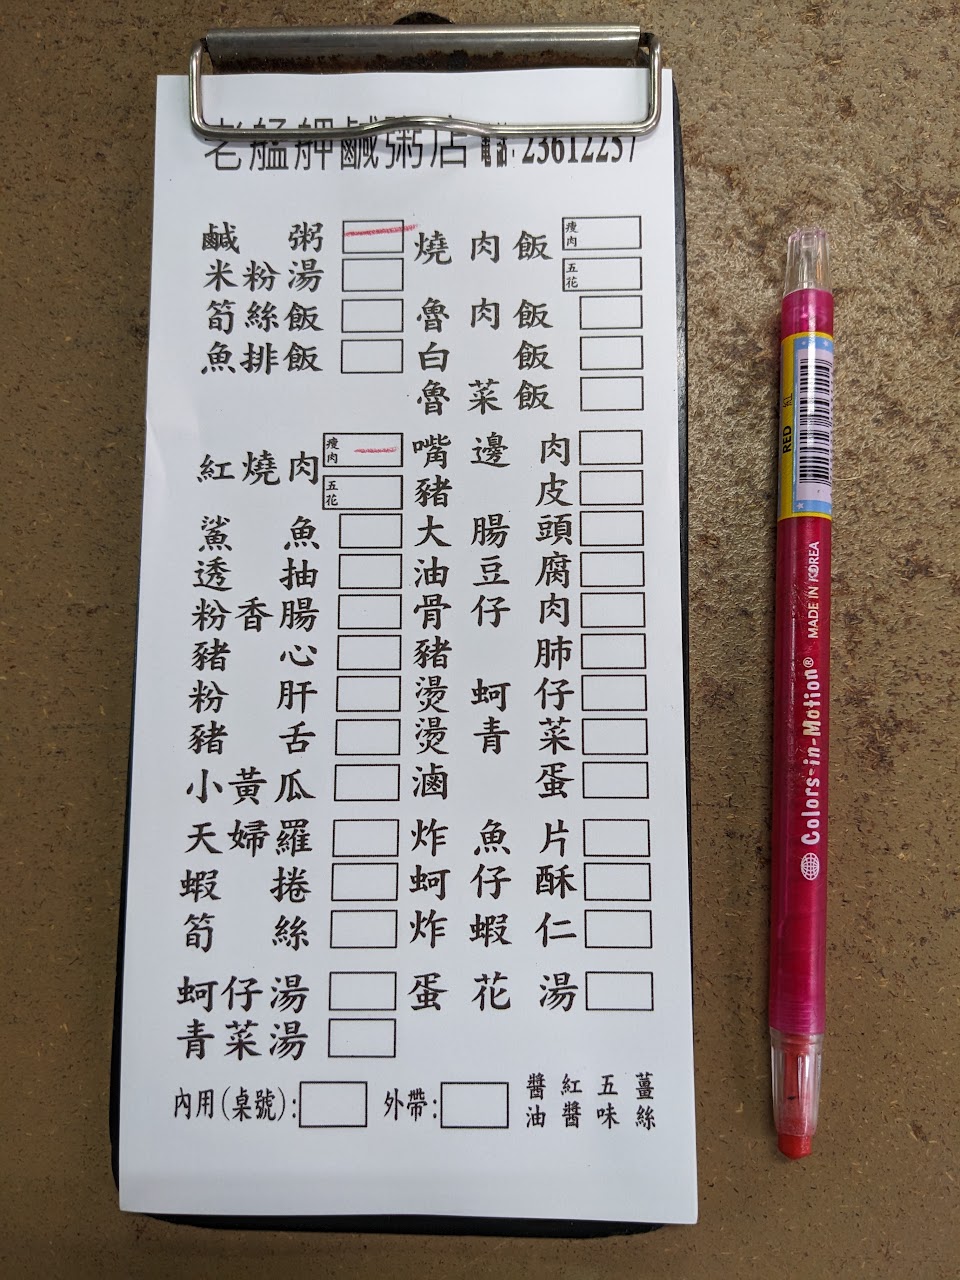 老艋舺鹹粥店 電話:23612257
鹹粥
米粉湯
筍絲飯
魚排飯
燒肉飯 瘦肉 五花
魯肉飯
白飯
魯菜飯
紅燒肉 瘦肉 五花
鯊魚
透抽
粉香腸
豬心
粉肝
豬舌
小黃瓜
嘴邊肉
豬皮
大腸頭
油豆腐
骨仔肉
豬肺
燙蚵仔
燙青菜
滷蛋
天婦羅
蝦捲
筍絲
炸魚片
蚵仔酥
炸蝦仁
蚵仔湯
青菜湯
蛋花湯
內用(桌號): 外帶: 醬油 紅醬 五味 薑絲
RED 紅
Colors-in-Motion® MADE IN KOREA